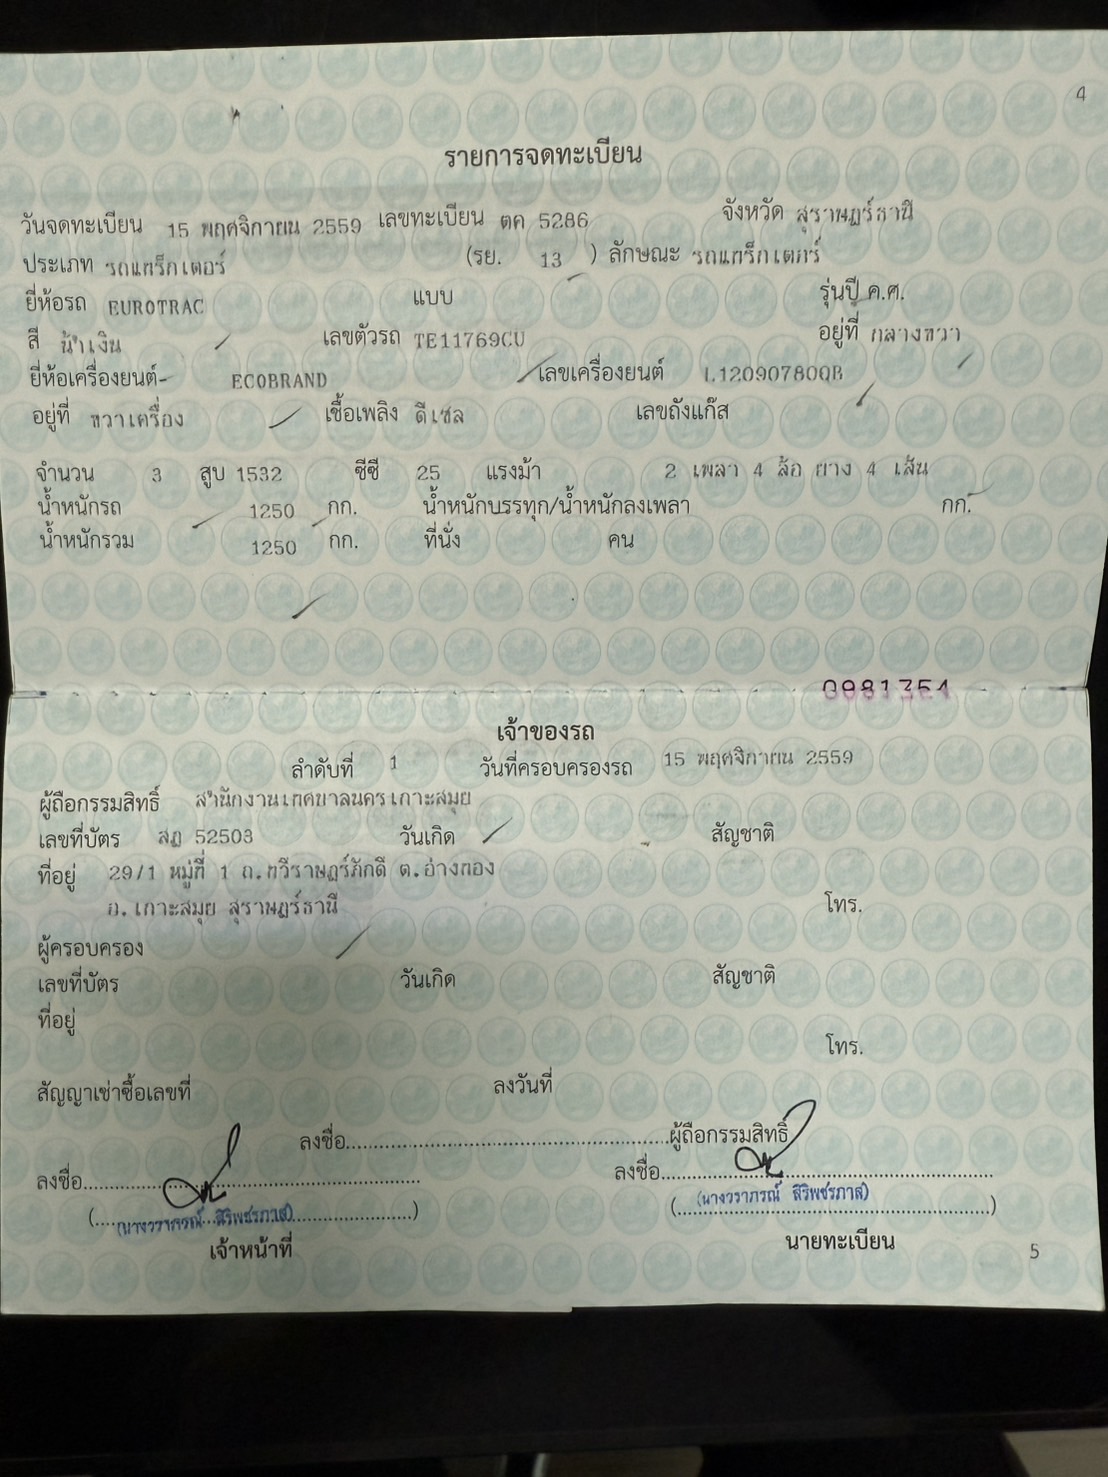 4
รายการจดทะเบียน
วันจดทะเบียน 15 พฤศจิกายน 2559 เลขทะเบียน ตค 5286 จังหวัด สุราษฎร์ธานี
ประเภท รถแทร็กเตอร์ (รย. 13 ) ลักษณะ รถแทร็กเตอร์
ยี่ห้อรถ EUROTRAC แบบ รุ่นปี ค.ศ.
สี น้ำเงิน เลขตัวรถ TE11769CU อยู่ที่ กลางขวา
ยี่ห้อเครื่องยนต์ ECOBRAND เลขเครื่องยนต์ L12090780QB
อยู่ที่ ขวาเครื่อง เชื้อเพลิง ดีเซล เลขถังแก๊ส
จำนวน 3 สูบ 1532 ซีซี 25 แรงม้า 2 เพลา 4 ล้อ ยาง 4 เส้น
น้ำหนักรถ 1250 กก. น้ำหนักบรรทุก/น้ำหนักลงเพลา กก.
น้ำหนักรวม 1250 กก. ที่นั่ง คน
0981354
เจ้าของรถ
ลำดับที่ 1 วันที่ครอบครองรถ 15 พฤศจิกายน 2559
ผู้ถือกรรมสิทธิ์ สำนักงานเทศบาลนครเกาะสมุย
เลขที่บัตร สฎ 52503 วันเกิด สัญชาติ
ที่อยู่ 29/1 หมู่ที่ 1 ถ.ทวีราษฎร์ภักดี ต.อ่างทอง
อ.เกาะสมุย สุราษฎร์ธานี โทร.
ผู้ครอบครอง
เลขที่บัตร วันเกิด สัญชาติ
ที่อยู่
โทร.
สัญญาเช่าซื้อเลขที่ ลงวันที่
ลงชื่อ........................................ผู้ถือกรรมสิทธิ์
ลงชื่อ........................................ ลงชื่อ........................................
(นางวราภรณ์ สิริพชรภาส) (นางวราภรณ์ สิริพชรภาส)
เจ้าหน้าที่ นายทะเบียน
5